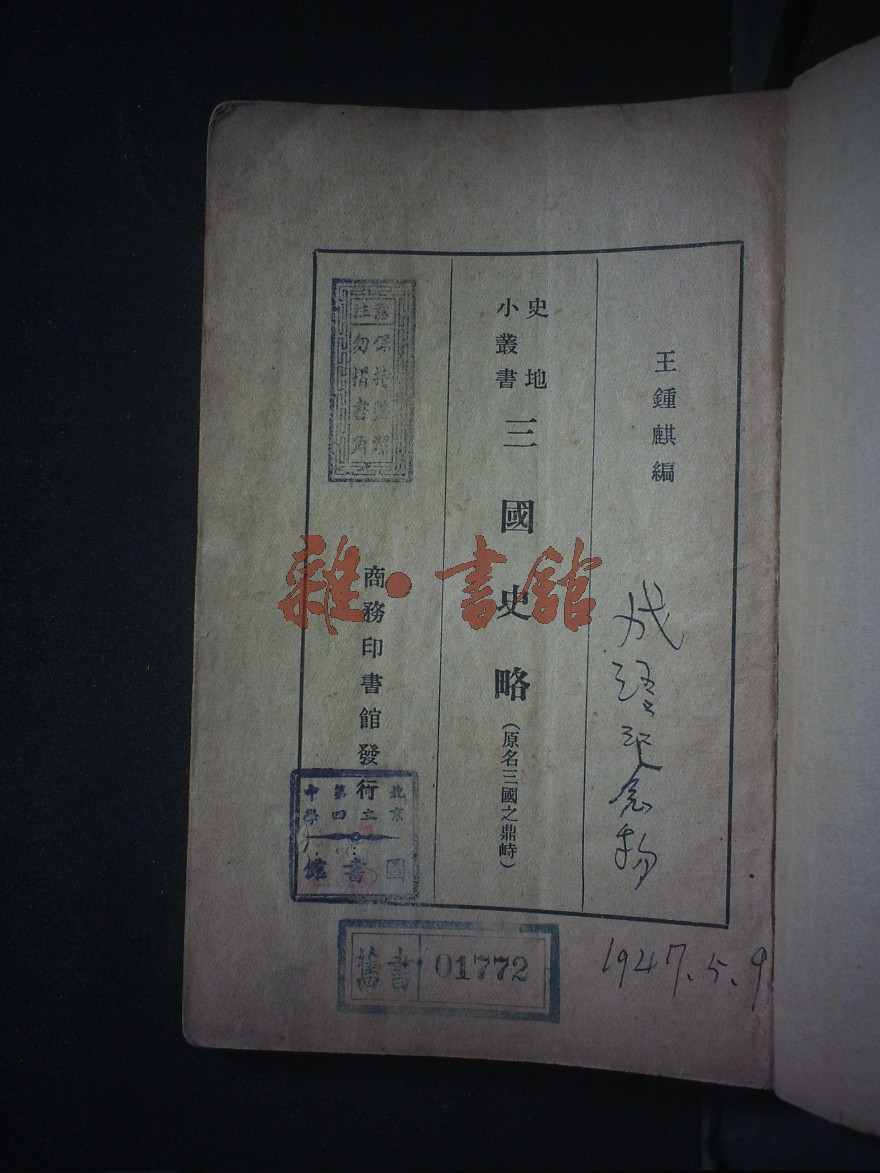 王鍾麒編
史地
小叢書
三國史略
(原名三國之鼎峙)
商務印書館發行
注意
保持整潔
勿摺書角
雜·書館
北京
立
第四
中學
圖書館
舊書 01772
念物
1947.5.9